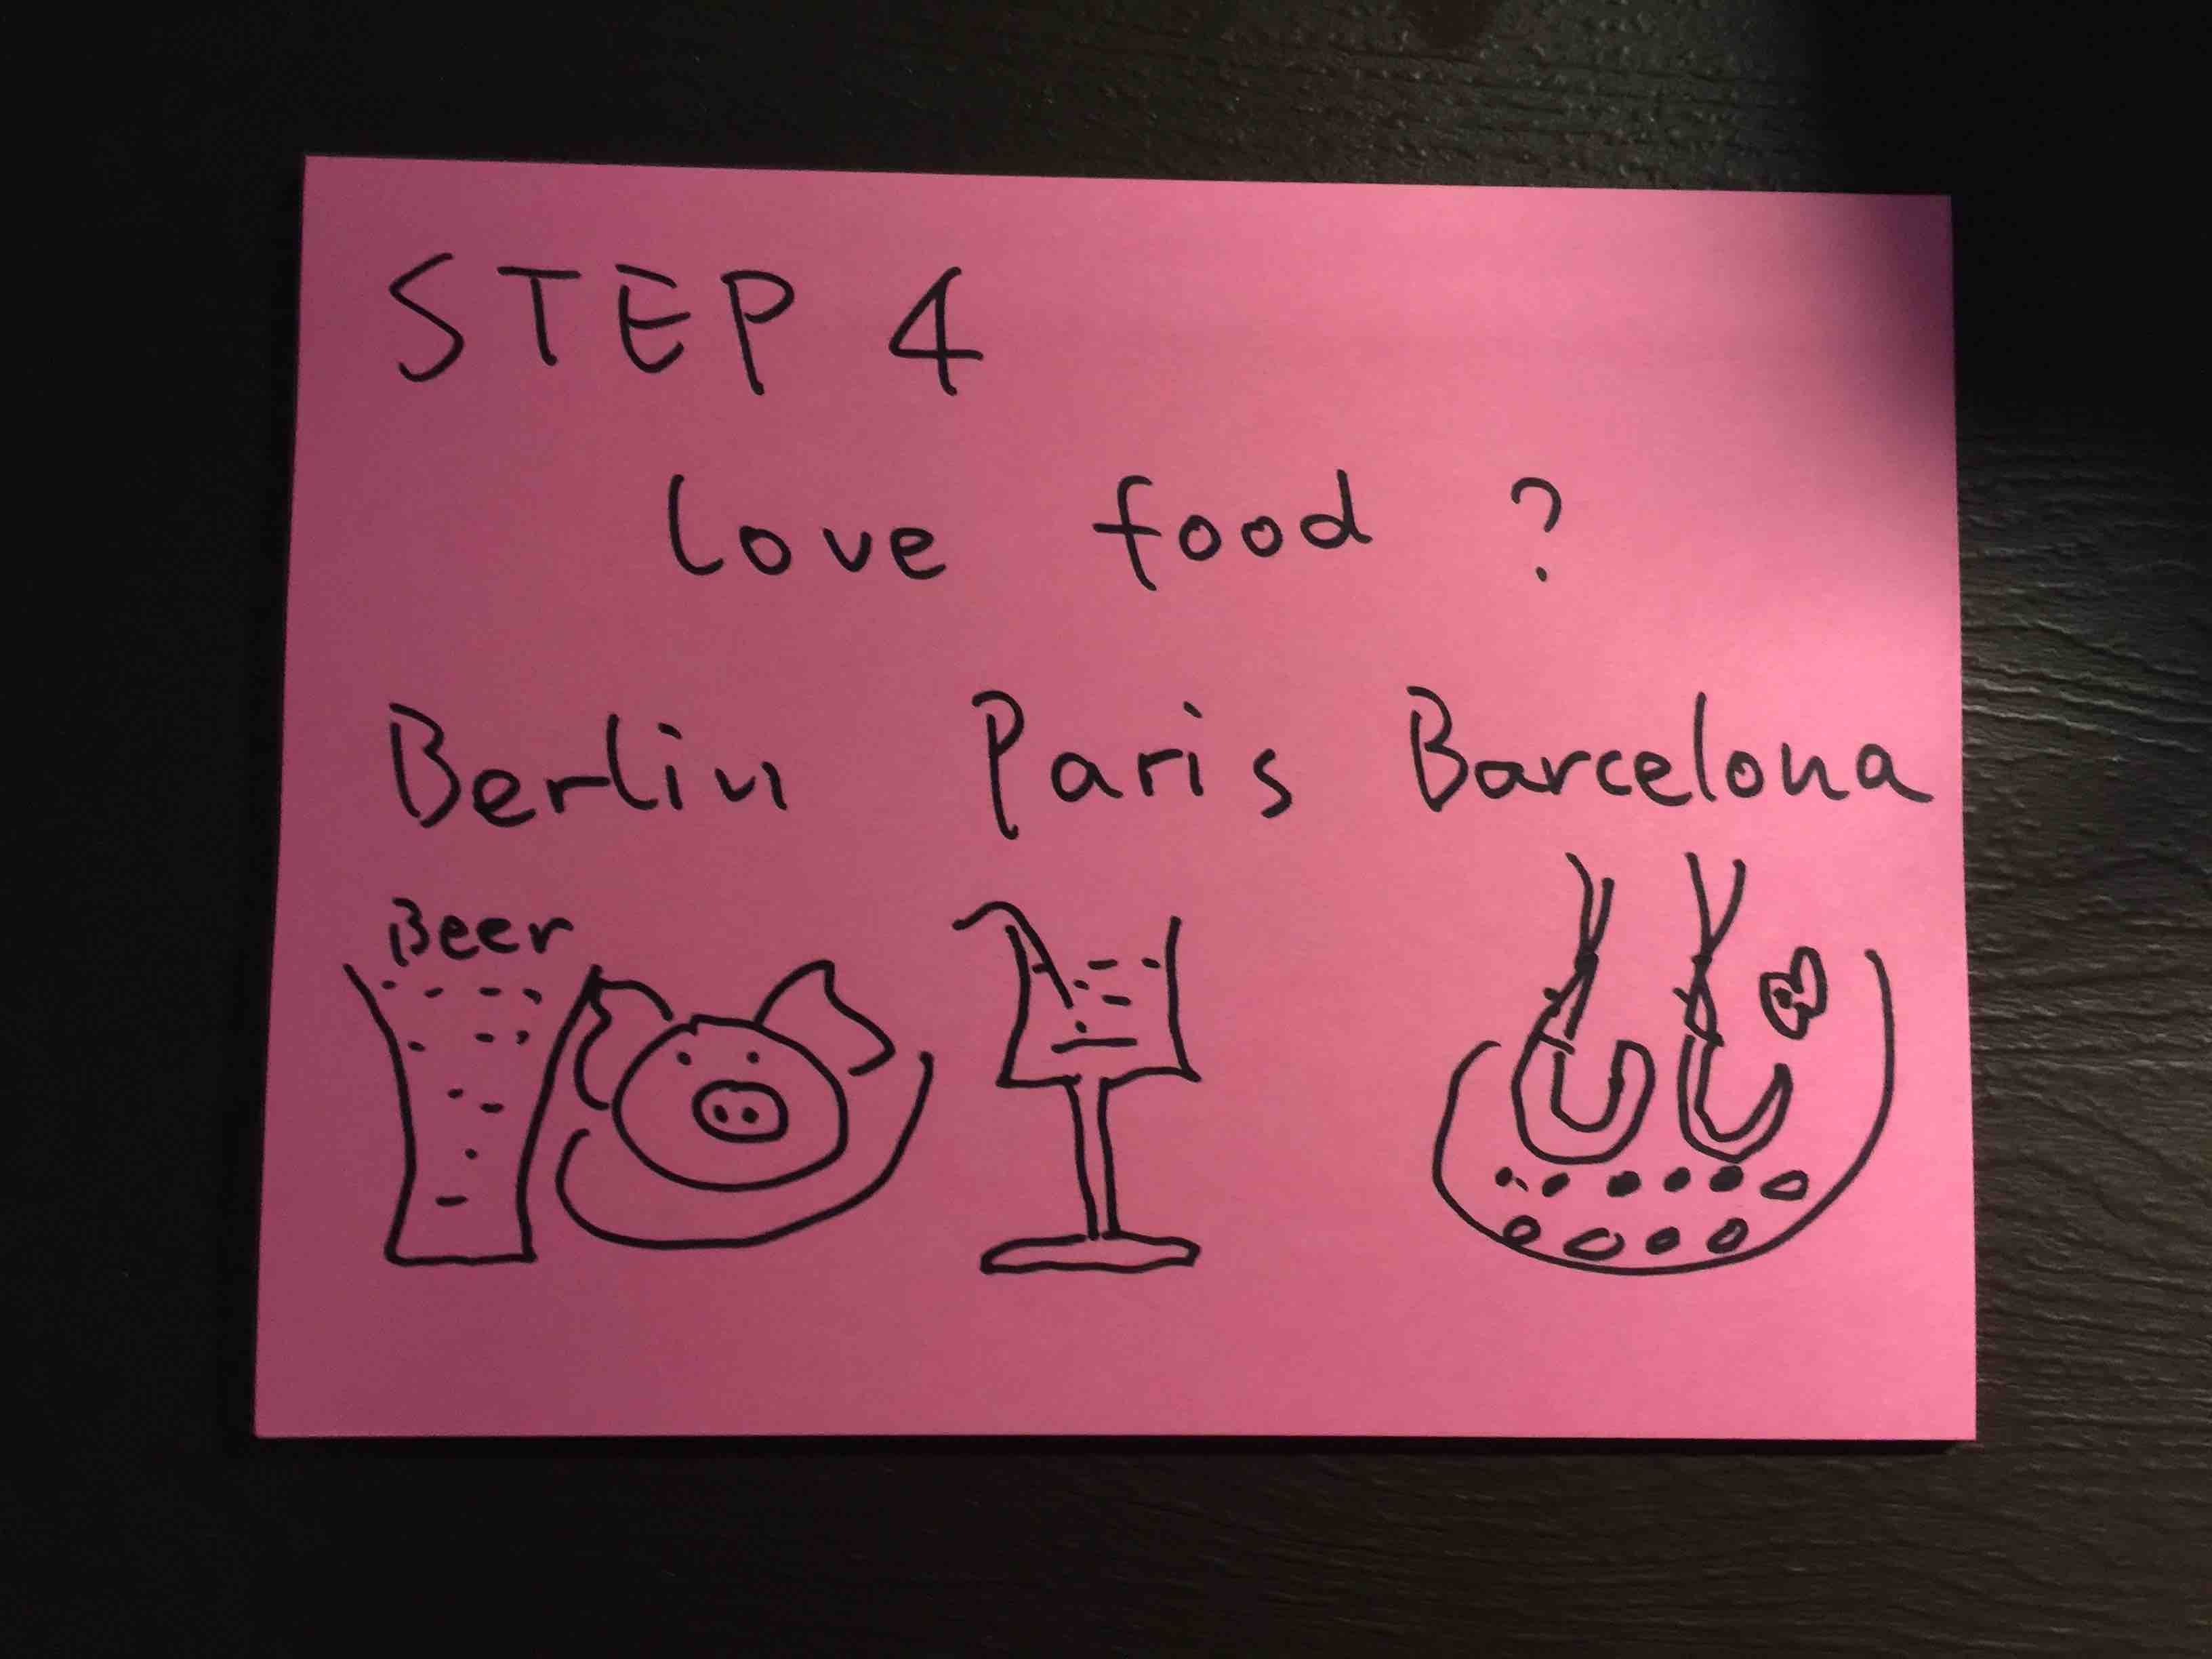 STEP 4
love food ?
Berlin Paris Barcelona
Beer